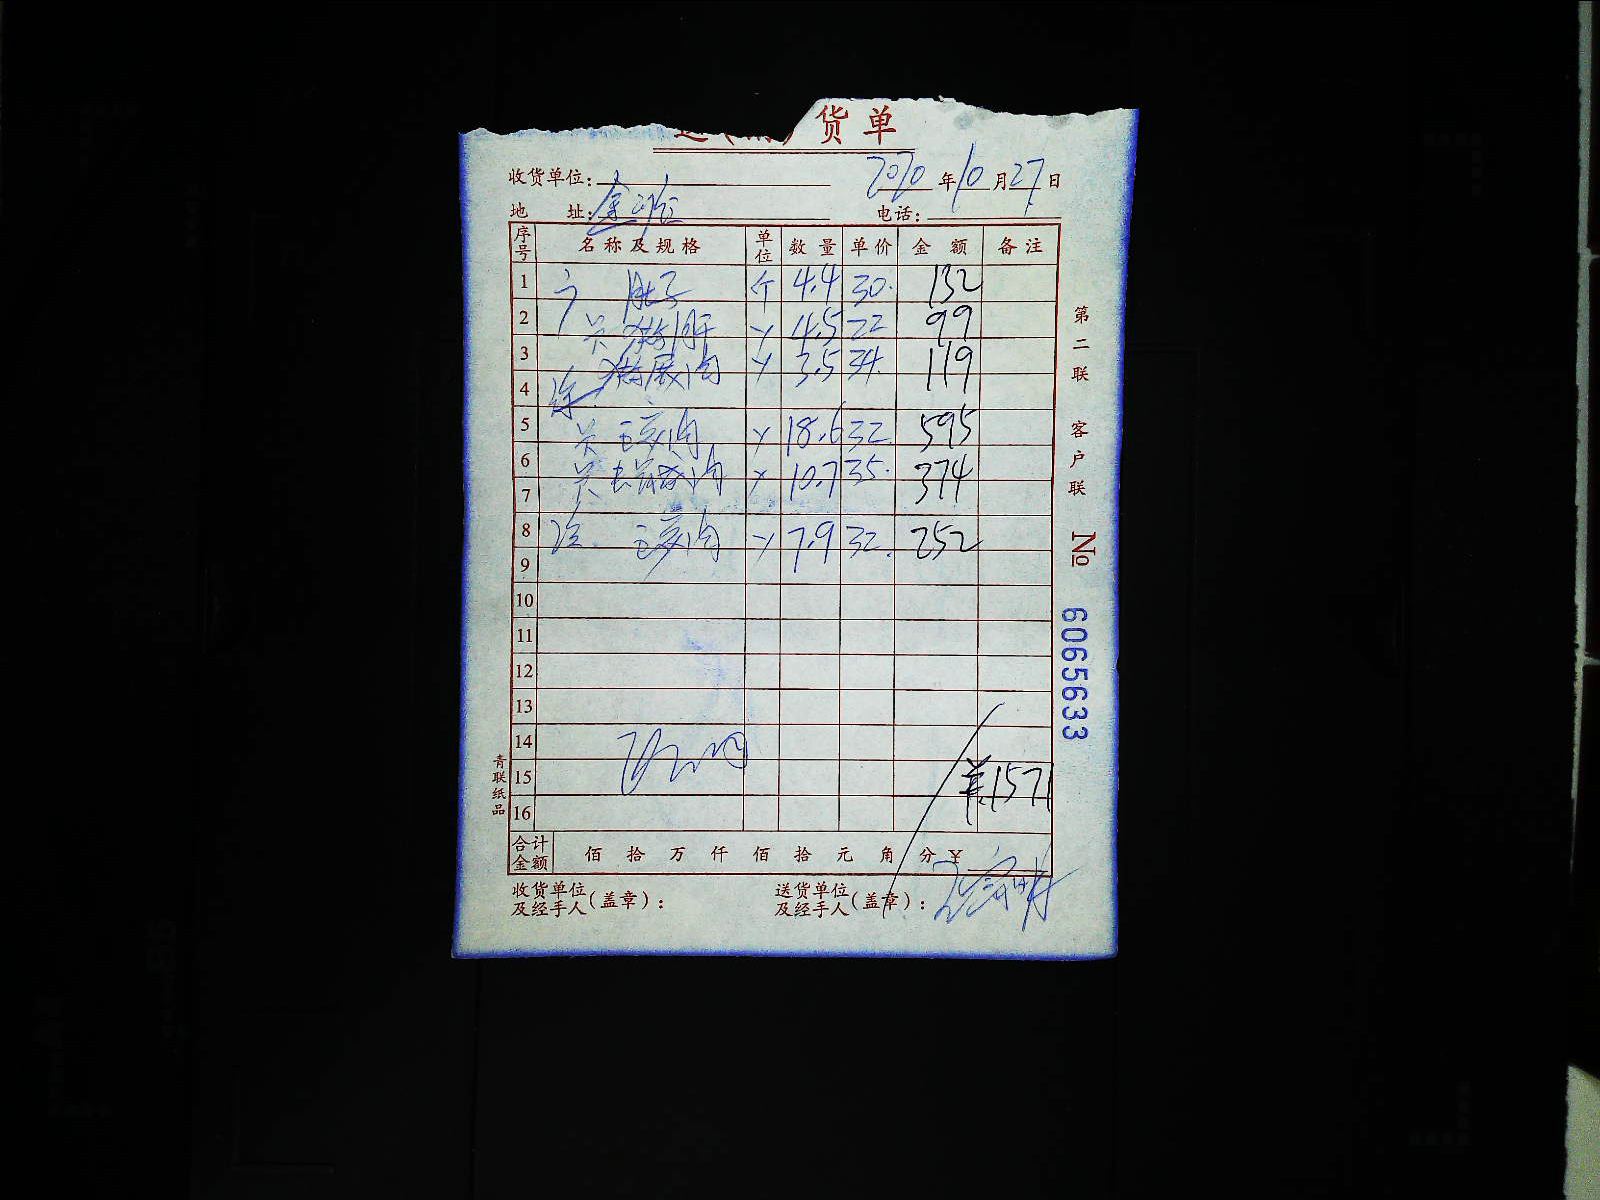 货单
收货单位： 2020年10月27日
地 址： 电话：
序号 名称及规格 单位 数量 单价 金额 备注
1 肚子 个 4.4 30. 132
2 猪肝 4.5 22 99
3 猪展肉 3.5 34. 119
4
5 肉 18.6 32 595
6 肉 10.7 35. 374
7
8 肉 7.9 32. 252
9
10
11
12
13
14
15 ¥1571
16
合计金额 佰 拾 万 仟 佰 拾 元 角 分 ¥
收货单位及经手人（盖章）： 送货单位及经手人（盖章）：
第二联 客户联
№ 6065633
青联纸品